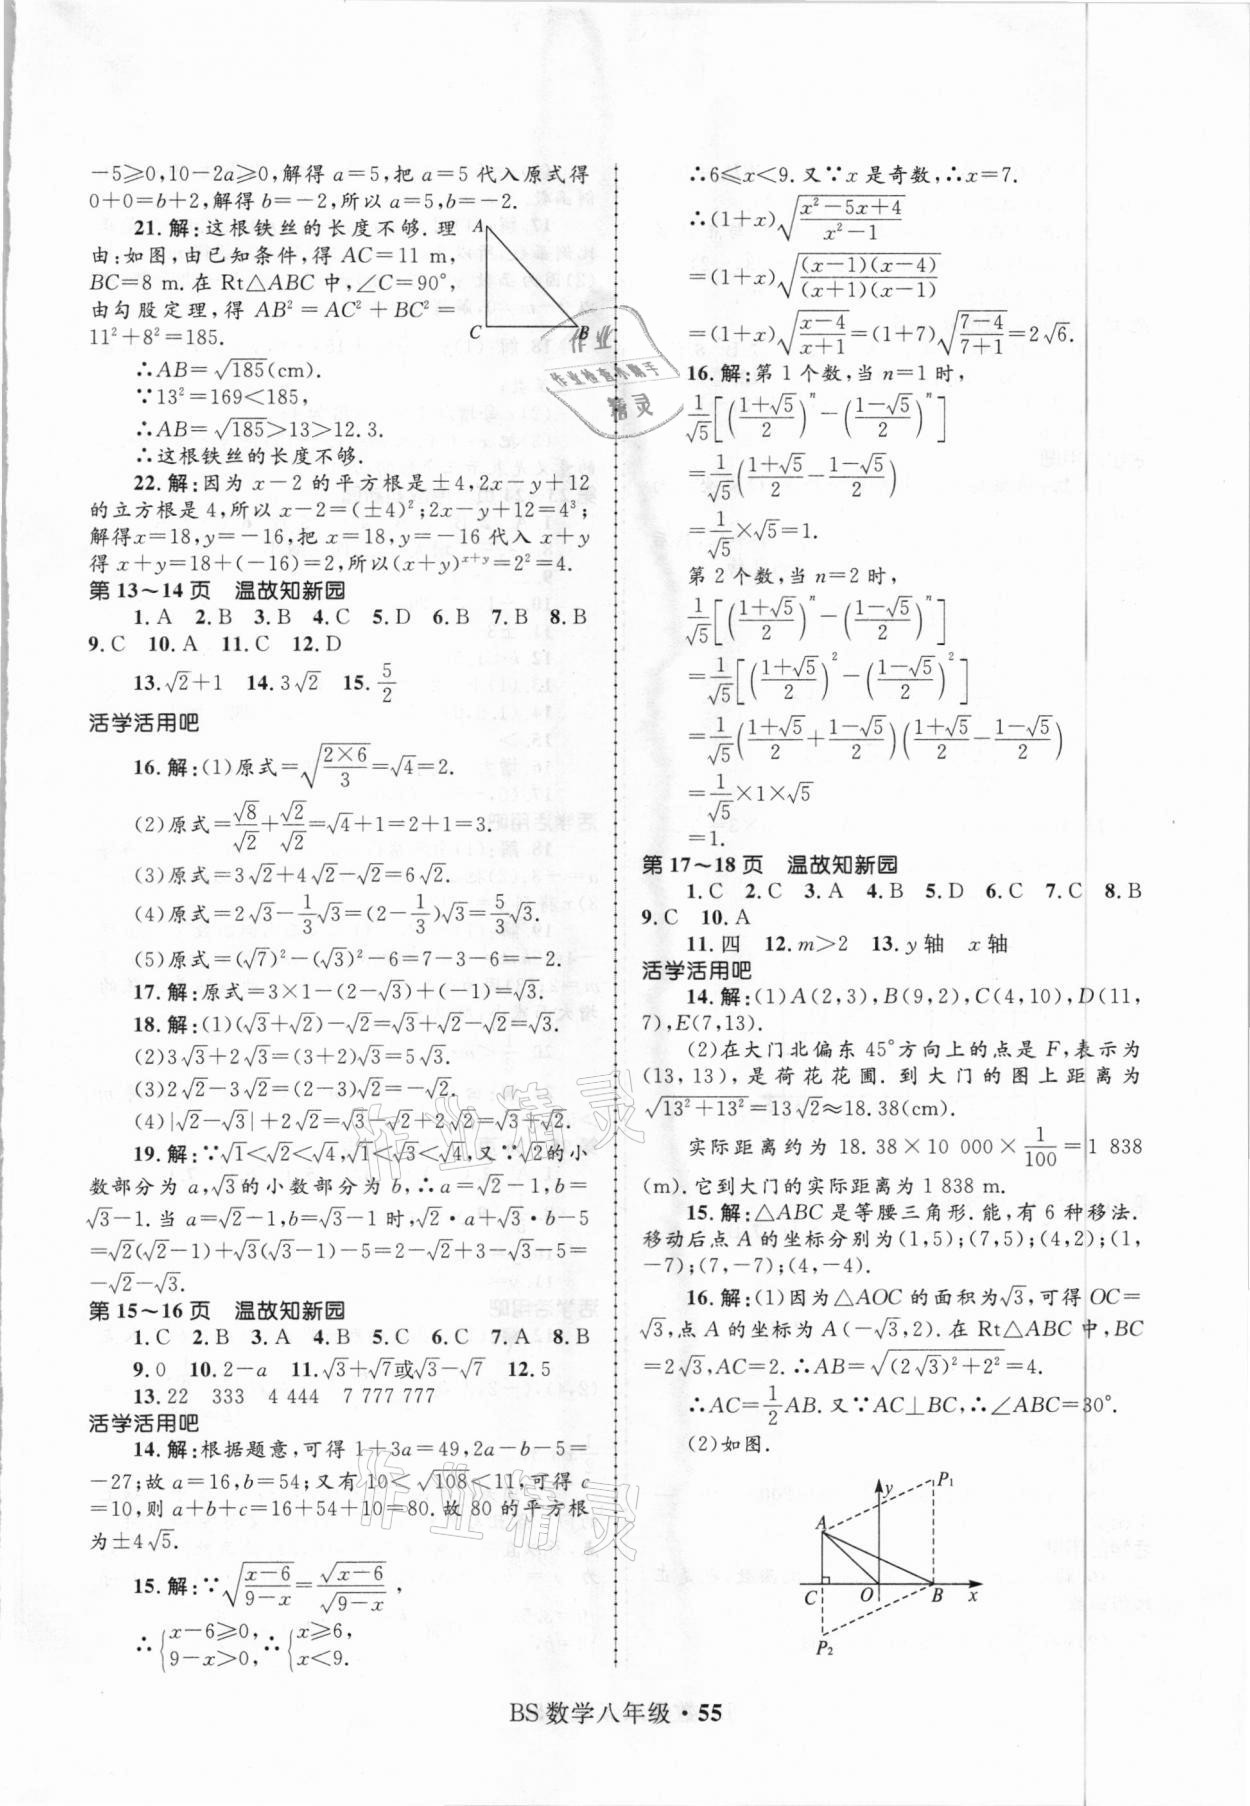 -5≥0,10-2a≥0,解得 a=5,把 a=5 代入原式得
0+0=b+2,解得 b=-2,所以 a=5,b=-2.
21.解:这根铁丝的长度不够.理
由:如图,由已知条件,得 AC=11 m,
BC=8 m.在 Rt△ABC 中,∠C=90°,
由勾股定理,得 AB²=AC²+BC²=
11²+8²=185.
A
C
B
∴AB=√185(cm).
∵13²=169<185,
∴AB=√185>13>12.3.
∴这根铁丝的长度不够.
22.解:因为 x-2 的平方根是±4,2x-y+12
的立方根是 4,所以 x-2=(±4)²;2x-y+12=4³;
解得x=18,y=-16,把 x=18,y=-16 代入 x+y
得 x+y=18+(-16)=2,所以(x+y)^(x+y)=2²=4.
第 13~14 页 温故知新园
1.A 2.B 3.B 4.C 5.D 6.B 7.B 8.B
9.C 10.A 11.C 12.D
13.√2+1 14.3√2 15.5/2
活学活用吧
16.解:(1)原式=√(2×6/3)=√4=2.
(2)原式=√8/√2+√2/√2=√4+1=2+1=3.
(3)原式=3√2+4√2-√2=6√2.
(4)原式=2√3-1/3√3=(2-1/3)√3=5/3√3.
(5)原式=(√7)²-(√3)²-6=7-3-6=-2.
17.解:原式=3×1-(2-√3)+(-1)=√3.
18.解:(1)(√3+√2)-√2=√3+√2-√2=√3.
(2)3√3+2√3=(3+2)√3=5√3.
(3)2√2-3√2=(2-3)√2=-√2.
(4)|√2-√3|+2√2=√3-√2+2√2=√3+√2.
19.解:∵√1<√2<√4,√1<√3<√4,又∵√2的小
数部分为 a,√3的小数部分为 b,∴a=√2-1,b=
√3-1.当 a=√2-1,b=√3-1 时,√2·a+√3·b-5
=√2(√2-1)+√3(√3-1)-5=2-√2+3-√3-5=
-√2-√3.
第 15~16 页 温故知新园
1.C 2.B 3.A 4.B 5.C 6.C 7.A 8.B
9.0 10.2-a 11.√3+√7或√3-√7 12.5
13.22 333 4 444 7 777 777
活学活用吧
14.解:根据题意,可得 1+3a=49,2a-b-5=
-27;故 a=16,b=54;又有 10<√108<11,可得 c
=10,则 a+b+c=16+54+10=80.故 80 的平方根
为±4√5.
15.解:∵√((x-6)/(9-x))=√(x-6)/√(9-x),
∴{x-6≥0, 9-x>0, ∴{x≥6, x<9.
∴6≤x<9.又∵x 是奇数,∴x=7.
∴(1+x)√((x²-5x+4)/(x²-1))
=(1+x)√((x-1)(x-4)/(x+1)(x-1))
=(1+x)√((x-4)/(x+1))=(1+7)√((7-4)/(7+1))=2√6.
16.解:第 1 个数,当 n=1 时,
1/√5[((1+√5)/2)ⁿ-((1-√5)/2)ⁿ]
=1/√5((1+√5)/2-(1-√5)/2)
=1/√5×√5=1.
第 2 个数,当 n=2 时,
1/√5[((1+√5)/2)ⁿ-((1-√5)/2)ⁿ]
=1/√5[((1+√5)/2)²-((1-√5)/2)²]
=1/√5((1+√5)/2+(1-√5)/2)((1+√5)/2-(1-√5)/2)
=1/√5×1×√5
=1.
第 17~18 页 温故知新园
1.C 2.C 3.A 4.B 5.D 6.C 7.C 8.B
9.C 10.A
11.四 12.m>2 13.y 轴 x 轴
活学活用吧
14.解:(1)A(2,3),B(9,2),C(4,10),D(11,
7),E(7,13).
(2)在大门北偏东 45°方向上的点是 F,表示为
(13,13),是荷花花圃.到大门的图上距离为
√(13²+13²)=13√2≈18.38(cm).
实际距离约为 18.38×10 000×1/100=1 838
(m).它到大门的实际距离为 1 838 m.
15.解:△ABC 是等腰三角形.能,有 6 种移法.
移动后点 A 的坐标分别为(1,5);(7,5);(4,2);(1,
-7);(7,-7);(4,-4).
16.解:(1)因为△AOC 的面积为√3,可得 OC=
√3,点 A 的坐标为 A(-√3,2).在 Rt△ABC 中,BC
=2√3,AC=2.∴AB=√((2√3)²+2²)=4.
∴AC=1/2AB.又∵AC⊥BC,∴∠ABC=30°.
(2)如图.
y
P₁
A
C
O
B
x
P₂
作业
作业检查小助手
精灵
作业精灵
作业精灵
BS 数学八年级·55